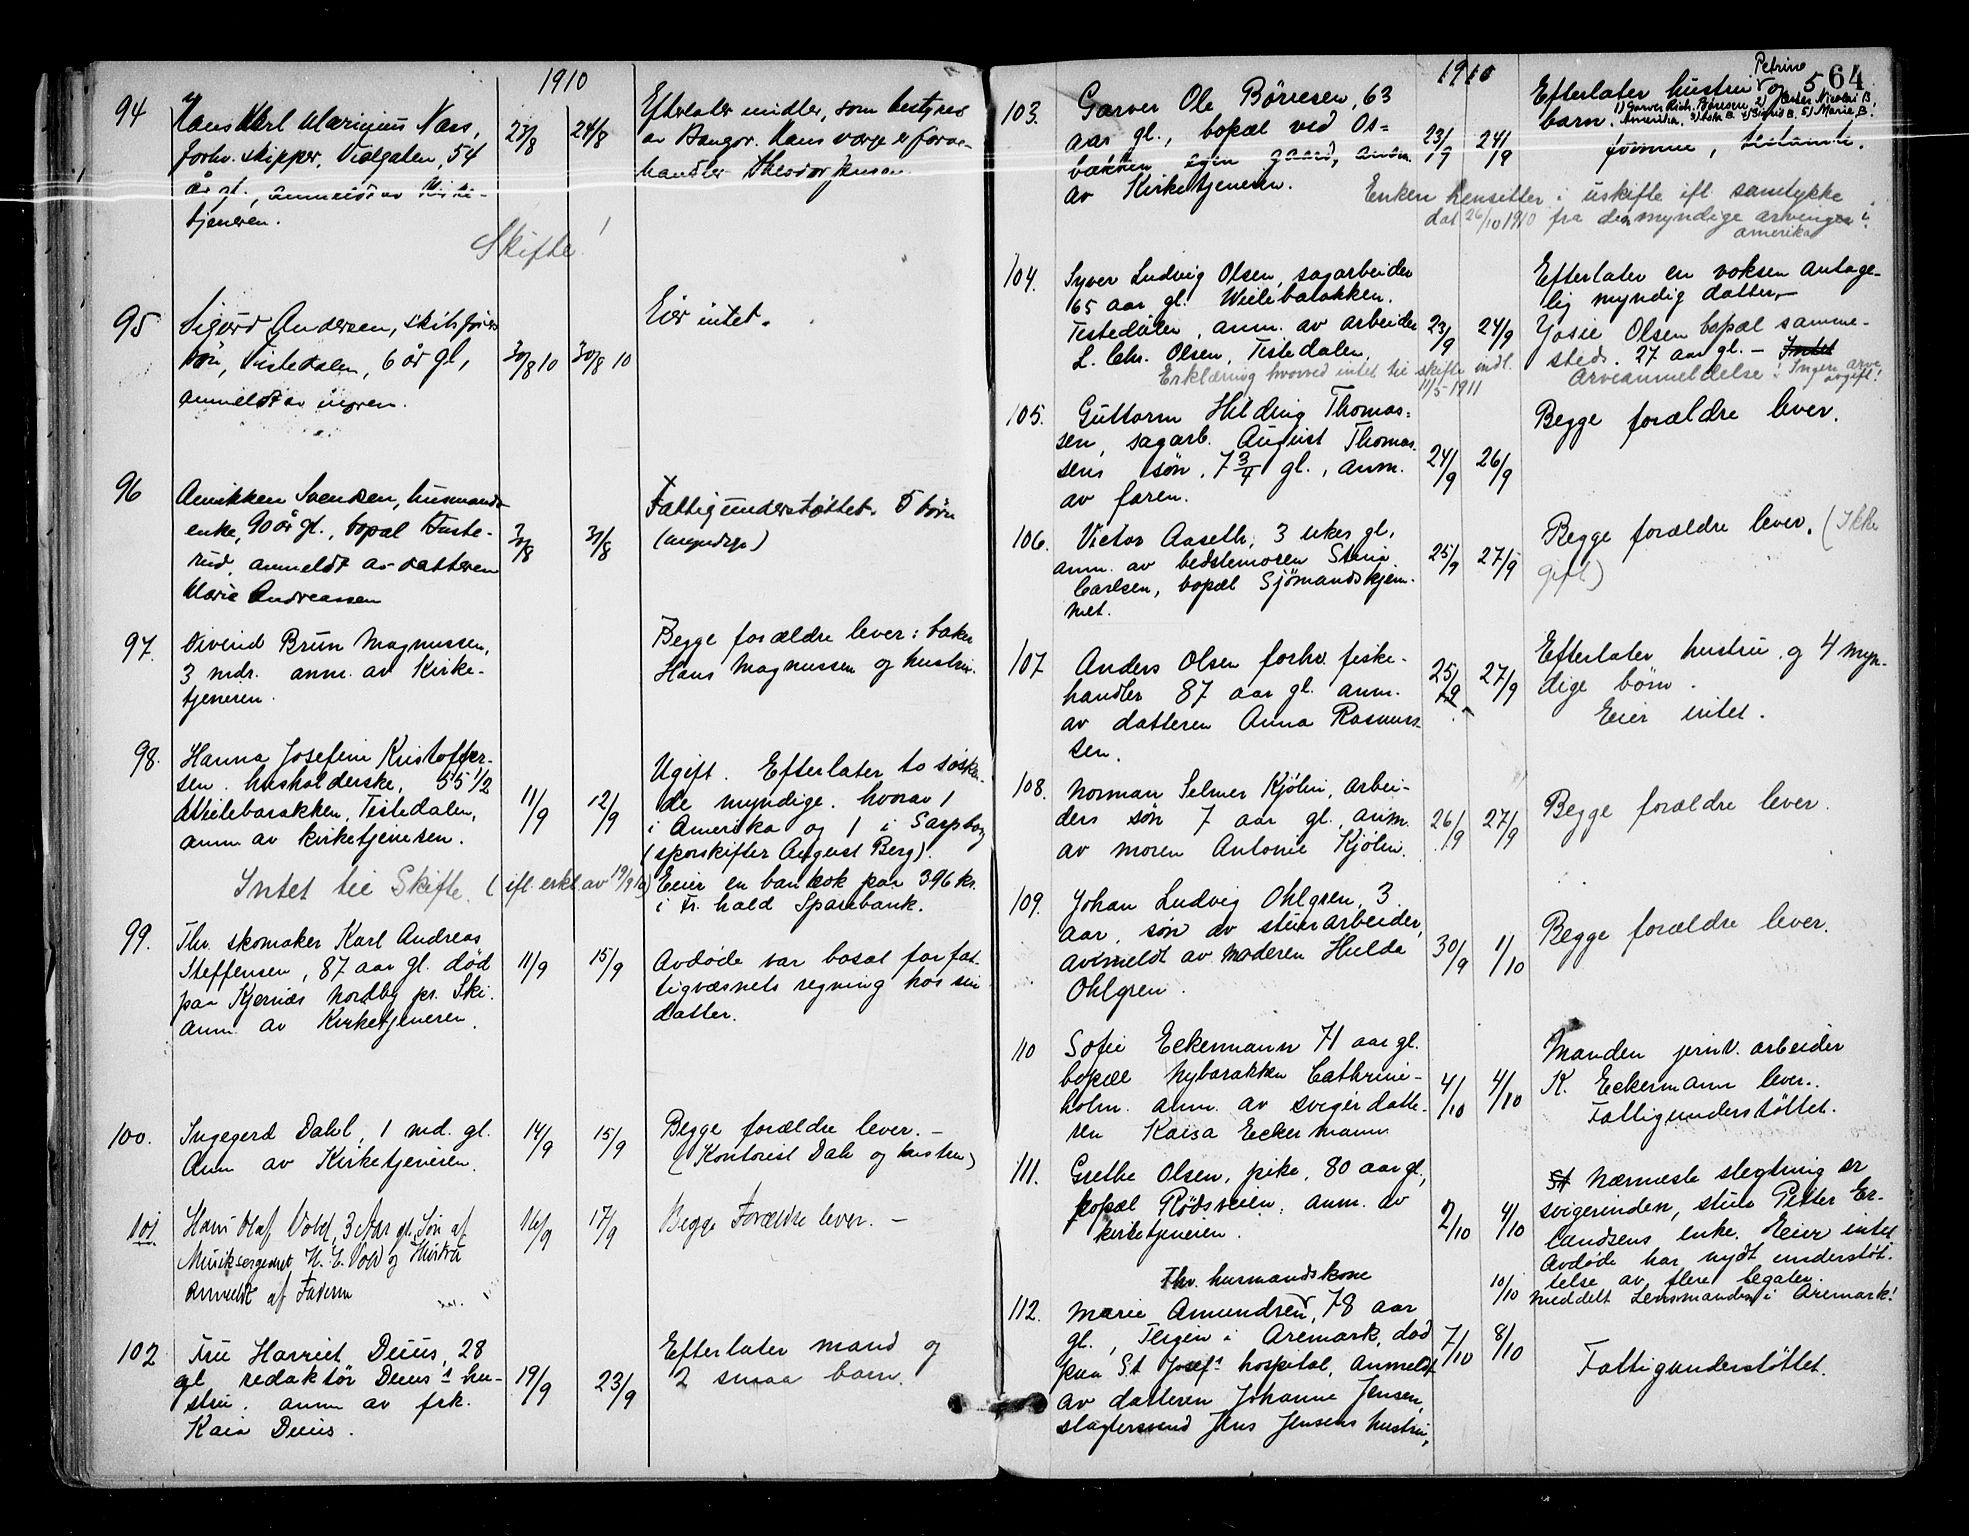 1910
94 Hans Karl Marinius Næss,
forhv. skipper, Vidlgaten, 54
år gl., anmeldt av Kirke-
tjeneren.
28/8 24/8
Efterlater midler, som bestyres
av Hangor. Hans værge er forve-
handler Theodor Jensen
Skifte!
95 Sigurd Andersen, skibsførers
søn, Tistedalen, 6 år gl,
anmeldt av moren.
30/8 10 30/8 10
Eier intet.
96 Annikken Svendsen, husmands-
enke, 90 år gl., bopæl
rud, anmeldt av datteren
Marie Andreassen
30/8 31/8
Fattigunderstøttet. 5 børn
(myndige)
97. Eivind Brun Magnussen,
3 mdr. anm. av Kirke-
tjeneren.
Begge forældre lever: baker
Hans Magnussen og hustru.
98. Hanna Josefine Kristoffer-
sen. husholderske, 55 1/2
Weilebarakken, Tistedalen,
anm av kirketjeneren.
11/9 12/9
Ugift. Efterlater to søsken-
de myndige. hvorav 1
i Amerika og 1 i Sarpsborg
(sporskifter August Berg).
Eier en bankbok paa 396 kr.
i Fr.hald Sparebank.
Intet til Skifte. (ifl. erkl av 19/9 10)
99. Fhv. skomaker Karl Andreas
Steffensen, 87 aar gl. død
paa Kjernæs Nordby pr. Ski.
anm. av Kirketjeneren.
11/9 15/9
Avdøde var bosat for fat-
tigvæsnets regning hos sin
datter.
100. Ingegerd Dahl, 1 md. gl.
Anm av Kirketjeneren.
14/9 15/9
Begge forældre lever. —
(Kontorist Dahl og hustru)
101 Hans Olaf Vold, 3 Aar gl. Søn af
Musiksergeant H. E. Vold og Hustru
Anmeldt af Faderen
16/9 17/9
Begge Forældre lever. —
102 Fru Harriet Duus, 28
gl redaktør Duus's hu-
stru. anm av frk.
Kaia Duus.
19/9 23/9
Efterlater mand og
2 smaa barn.
1910
564
103. Garver Ole Børresen, 63
aar gl., bopæl ved Os-
bækken egen gaard, anm.
av Kirketjeneren.
23/9 24/9
Petrine
Efterlater hustru og 5
barn. 1) Garver Rich. Børresen, 2) Nicolai B,
Amerika. 3) Asta B. 4) Sigrid B. 5) Marie B.
formue, testamente.
Enken hensitter i uskifte ifl. samtykke
dat 26/10 1910 fra den myndige arvingen i
amerika
104. Syver Ludvig Olsen, sagarbeider
65 aar gl. Weilebarakken.
Tistedalen, anm. av arbeider
L. Chr. Olsen, Tistedalen.
23/9 24/9
Efterlater en voksen antage-
lig myndig datter,—
Josie Olsen bopæl samme-
steds. 27 aar gl. — Intet
Arveanmeldelse! Ingen arve
avgift!
Erklæring hvorved intet til skifte indl.
11/5 1911
105. Guttorm Hilding Thomas-
sen, sagarb. August Thomas
sens søn, 7 3/4 gl., anm.
av faren.
24/9 26/9
Begge forældre lever.
106. Victor Aaseth, 3 uker gl,
anm. av bedstemoren Stina
Carlsen, bopæl Sjømandshjem-
met.
25/9 27/9
Begge forældre lever. (Ikke
gift)
107 Anders Olsen forhv. fiske-
handler 87 aar gl. anm.
av datteren Anna Rasmus-
sen.
25/9 27/9
Efterlater hustru og 4 myn-
dige børn.
Eier intet.
108. Norman Selmer Kjølen, arbei-
ders søn 7 aar gl. anm.
av moren Antonie Kjølen.
26/9 27/9
Begge forældre lever.
109. Johan Ludvig Ohlgren, 3
aar, søn av stuerarbeider,
anmeldt av moderen Hulda
Ohlgren.
30/9 1/10
Begge forældre lever.
110 Sofie Eckermann 71 aar gl.
bopæl Nybarakken Cathrine-
holm. anm. av svigerdatte-
ren Kaisa Eckermann
4/10 4/10
Manden jernv. arbeider
K. Eckermann lever.
Fattigunderstøttet.
111. Grethe Olsen, pike, 80 aar gl,
bopæl Rødsveien, anm. av
kirketjeneren.
2/10 4/10
Nærmeste slegtning er
svigerinden, stuer Petter Er-
landsens enke. Eier intet
Avdøde har nydt understøt-
telse av flere legater.
10/10 meddelt Lensmanden i Aremark!
Fhv. husmandskone
112. Marie Amundsen, 78 aar
gl., i Aremark, død
paa St Josefs hospital, anmeldt
av datteren Johanne Jensen,
slagtersvend Jens Jensens hustru,
7/10 8/10
Fattigunderstøttet.